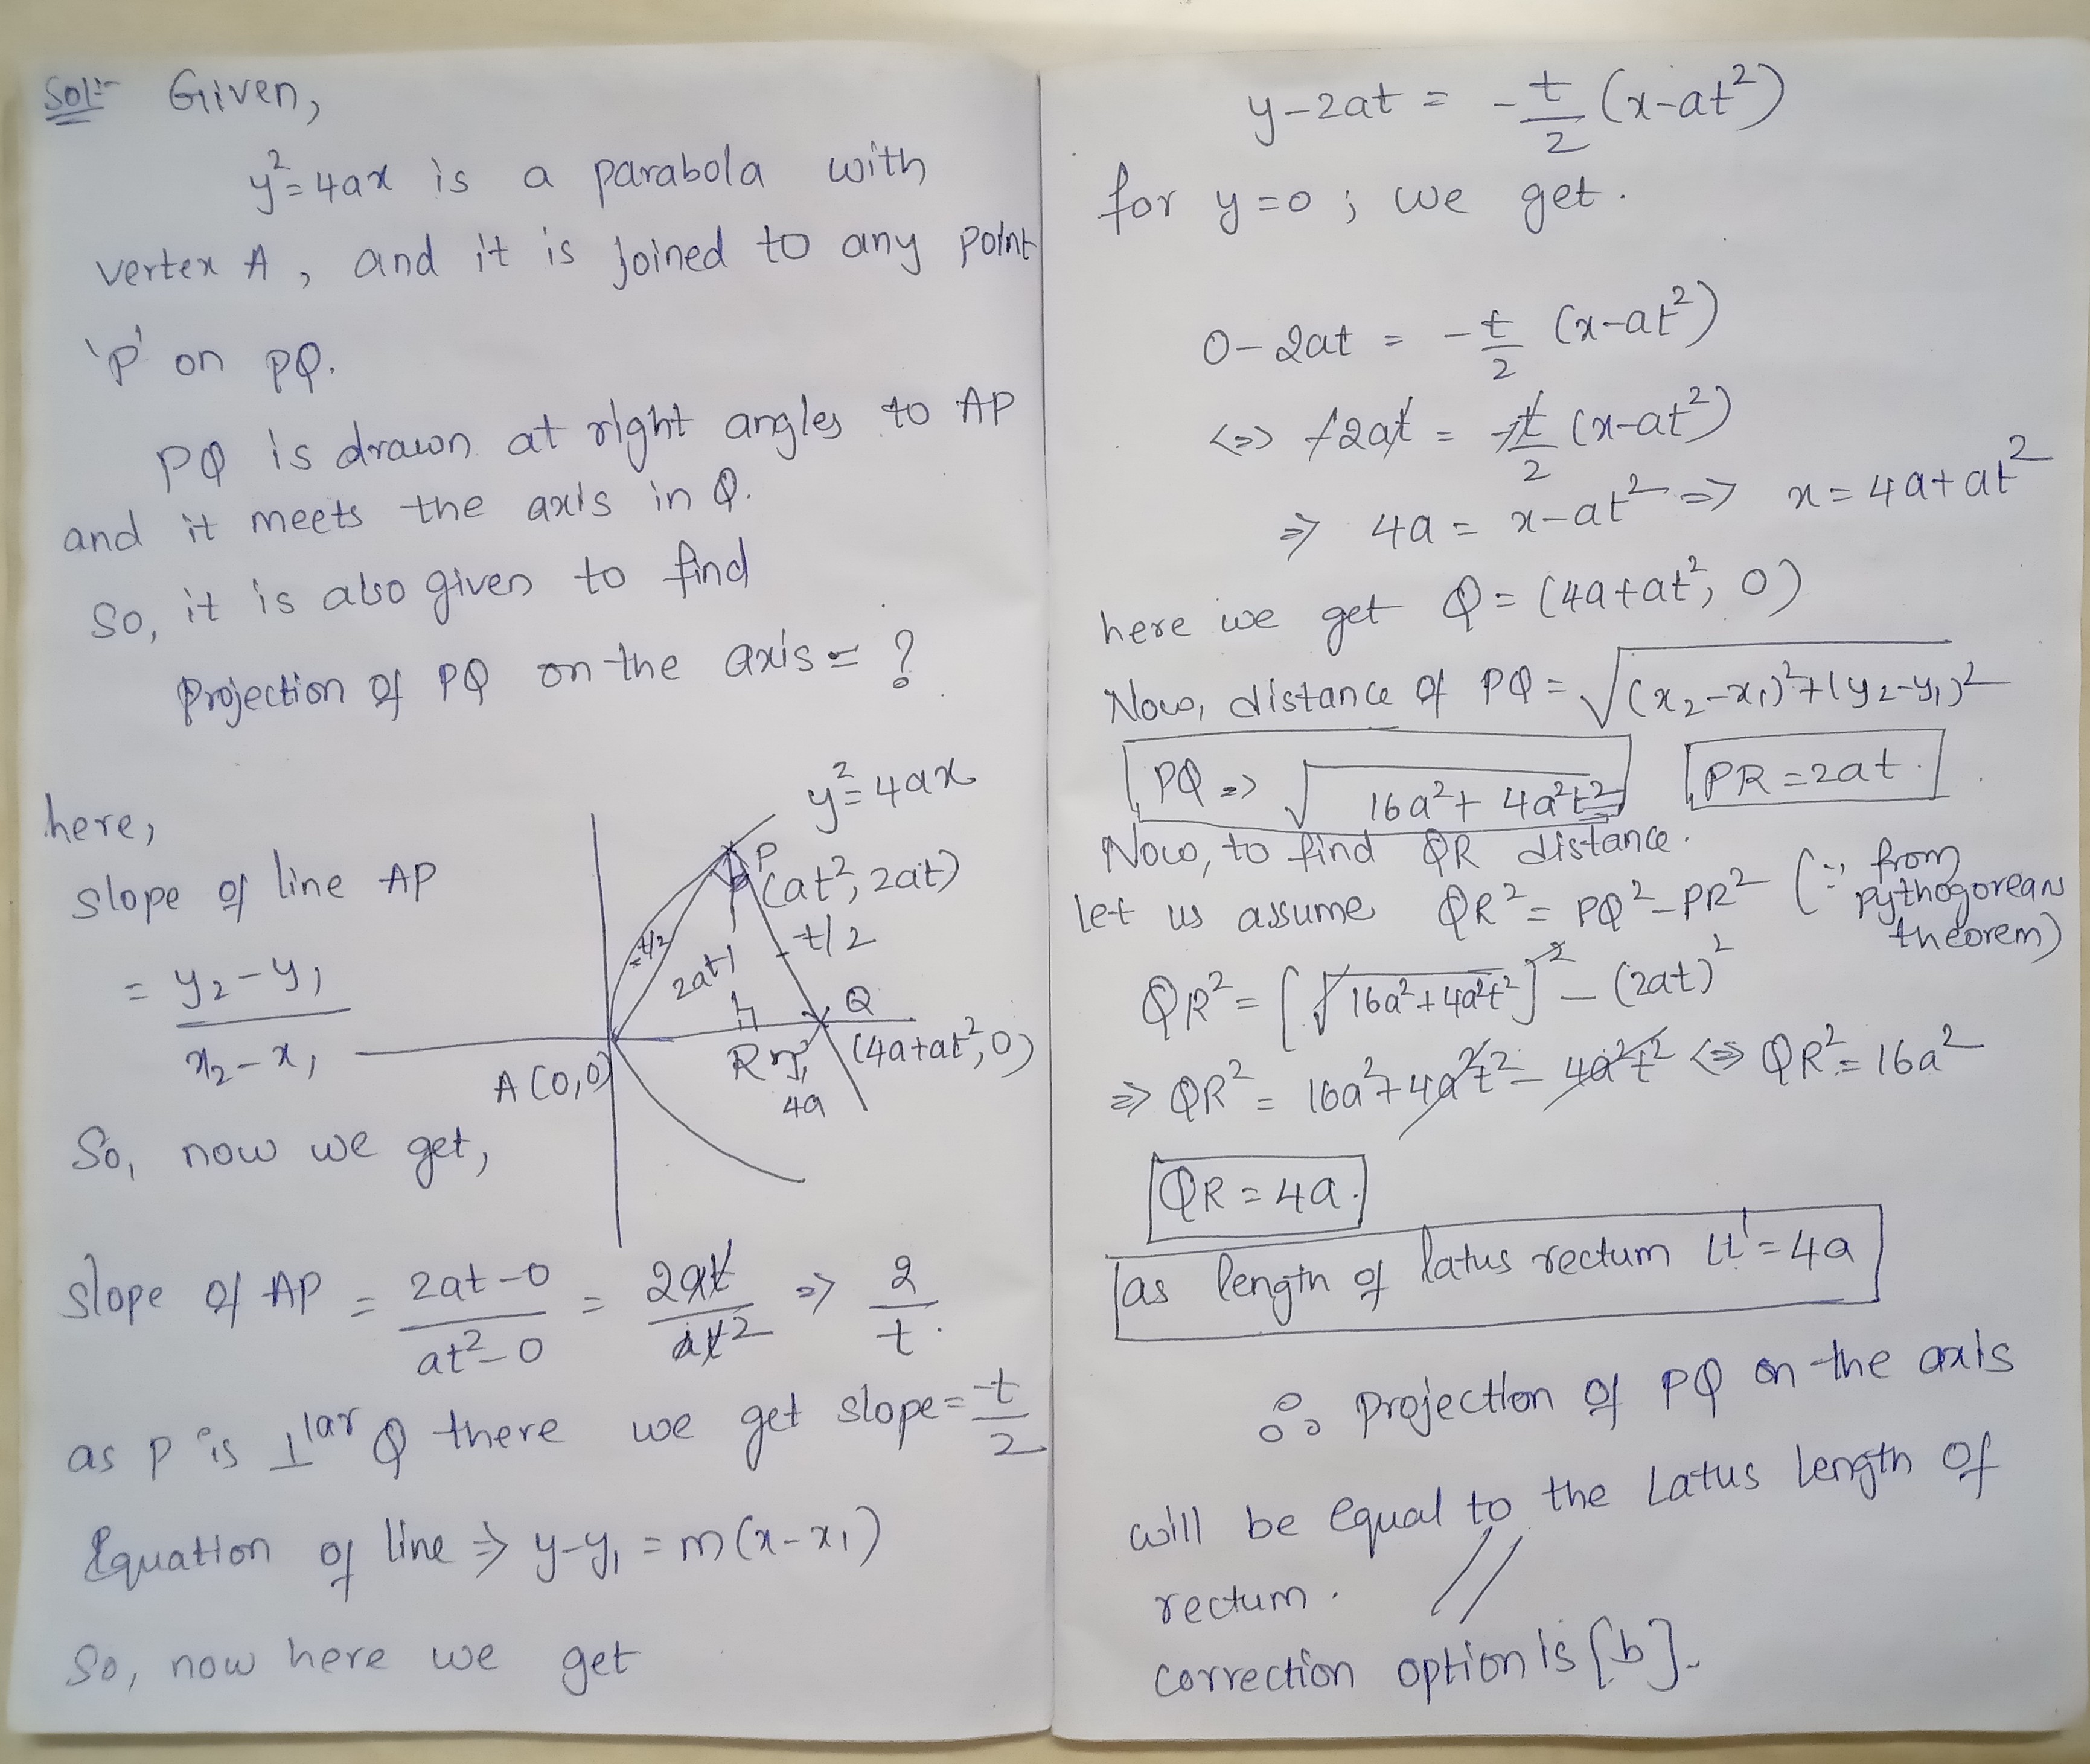 Sol:- Given,
y²=4ax is a parabola with
vertex A, and it is joined to any point
'p' on PQ.
PQ is drawn at right angles to AP
and it meets the axis in Q.
So, it is also given to find
Projection of PQ on the axis = ?
here,
slope of line AP
= y₂-y₁
x₂-x₁
y²=4ax
P
(at², 2at)
-t/2
2at
Q
(4a+at², 0)
R
4a
A(0,0)
So, now we get,
slope of AP = 2at-0/at²-0 = 2at/at² => 2/t.
as p is ⊥lar Q there we get slope = -t/2
Equation of line => y-y₁ = m(x-x₁)
So, now here we get
y-2at = -t/2 (x-at²)
for y=0; we get.
0-2at = -t/2 (x-at²)
<=> -2at = -t/2 (x-at²)
=> 4a = x-at² => x=4a+at²
here we get Q=(4a+at², 0)
Now, distance of PQ = √(x₂-x₁)²+(y₂-y₁)²
PQ => √16a²+4a²t² PR=2at.
Now, to find QR distance.
let us assume QR² = PQ²-PR² (∵ from
pythogorean
theorem)
QR² = [√16a²+4a²t²]² - (2at)²
=> QR² = 16a²+4a²t²-4a²t² <=> QR²=16a²
QR=4a.
as length of latus rectum LL'=4a
∴ Projection of PQ on the axis
will be equal to the Latus length of
rectum.
correction option is [b].